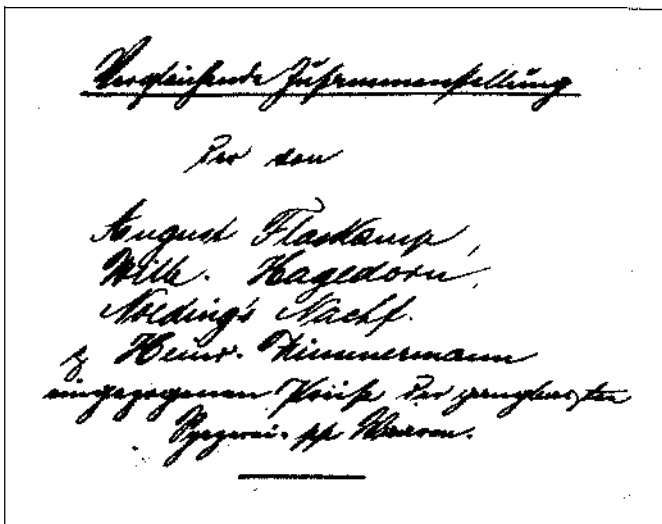 Vergleichende Zusammenstellung
der von
August Flaskamp,
Wilh. Hagedorn,
Nolding's Nachf.
& Heinr. Timmermann
eingezogenen Preise der gangbarsten
Spezerei- pp Waaren.